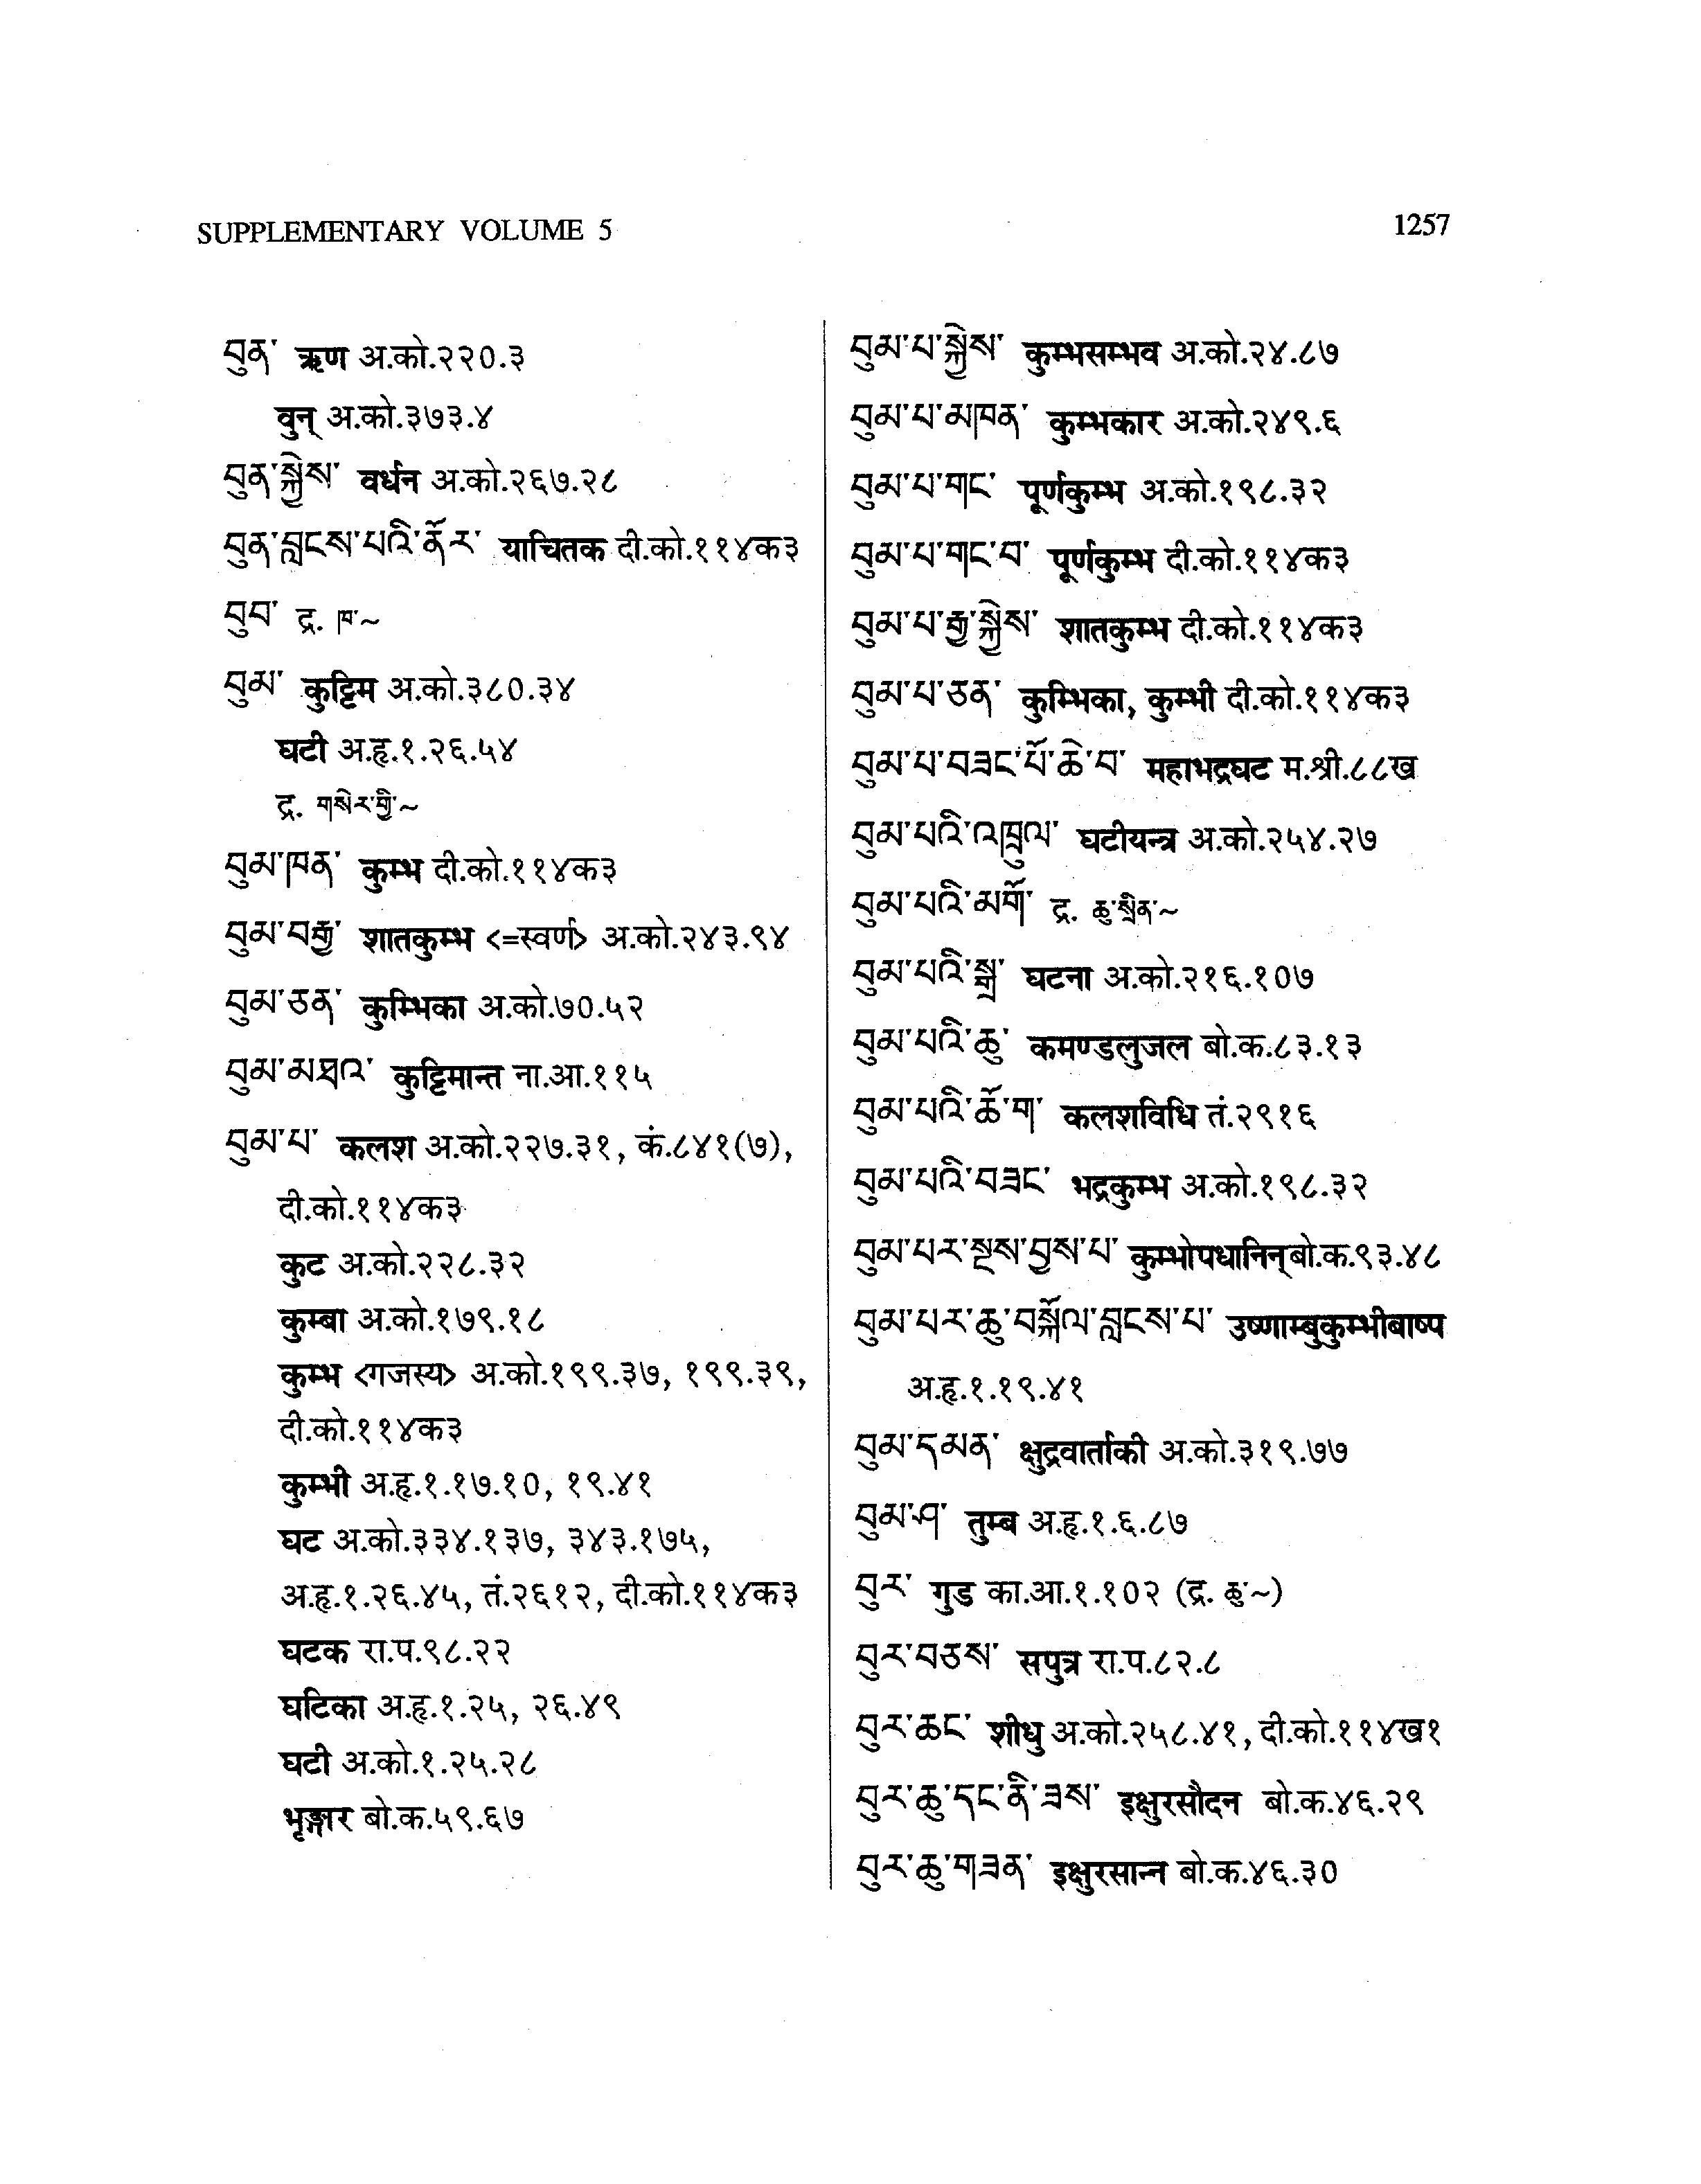 SUPPLEMENTARY VOLUME 5
1257
བུན་ ऋण अ.को.२२०.३
वुन् अ.को.३७३.४
བུན་སྐྱེས་ वर्धन अ.को.२६७.२८
བུན་བླངས་པའི་ནོར་ याचितक दी.को.११४क३
བུབ་ द्र. ཁ་~
བུམ་ कुट्टिम अ.को.३८०.३४
घटी अ.हृ.१.२६.५४
द्र. གསེར་གྱི་~
བུམ་ཁན་ कुम्भ दी.को.११४क३
བུམ་བརྒྱ་ शातकुम्भ <=स्वर्ण> अ.को.२४३.९४
བུམ་ཅན་ कुम्भिका अ.को.७०.५२
བུམ་མཐའ་ कुट्टिमान्त ना.आ.११५
བུམ་པ་ कलश अ.को.२२७.३१, कं.८४१(७),
दी.को.११४क३
कुट अ.को.२२८.३२
कुम्बा अ.को.१७९.१८
कुम्भ <गजस्य> अ.को.१९९.३७, १९९.३९,
दी.को.११४क३
कुम्भी अ.हृ.१.१७.१०, १९.४१
घट अ.को.३३४.१३७, ३४३.१७५,
अ.हृ.१.२६.४५, तं.२६१२, दी.को.११४क३
घटक रा.प.९८.२२
घटिका अ.हृ.१.२५, २६.४९
घटी अ.को.१.२५.२८
भृङ्गार बो.क.५९.६७
བུམ་པ་སྐྱེས་ कुम्भसम्भव अ.को.२४.८७
བུམ་པ་མཁན་ कुम्भकार अ.को.२४९.६
བུམ་པ་གང་ पूर्णकुम्भ अ.को.१९८.३२
བུམ་པ་གང་བ་ पूर्णकुम्भ दी.को.११४क३
བུམ་པ་རྒྱ་སྐྱེས་ शातकुम्भ दी.को.११४क३
བུམ་པ་ཅན་ कुम्भिका, कुम्भी दी.को.११४क३
བུམ་པ་བཟང་པོ་ཆེ་བ་ महाभद्रघट म.श्री.८८ख
བུམ་པའི་འཁྲུལ་ घटीयन्त्र अ.को.२५४.२७
བུམ་པའི་མགོ་ द्र. ཆུ་སྲིན་~
བུམ་པའི་སྒྲ་ घटना अ.को.२१६.१०७
བུམ་པའི་ཆུ་ कमण्डलुजल बो.क.८३.१३
བུམ་པའི་ཆོ་ག་ कलशविधि तं.२९१६
བུམ་པའི་བཟང་ भद्रकुम्भ अ.को.१९८.३२
བུམ་པར་སྔས་བྱས་པ་ कुम्भोपधानिन् बो.क.९३.४८
བུམ་པར་ཆུ་བསྐོལ་བླངས་པ་ उष्णाम्बुकुम्भीबाष्प
अ.हृ.१.१९.४१
བུམ་དམན་ क्षुद्रवार्ताकी अ.को.३१९.७७
བུམ་ཤ་ तुम्ब अ.हृ.१.६.८७
བུར་ गुड का.आ.१.१०२ (द्र. ཆུ་~)
བུར་བཅས་ सपुत्र रा.प.८२.८
བུར་ཆང་ शीधु अ.को.२५८.४१, दी.को.११४ख१
བུར་ཆུ་དང་ནི་ཟས་ इक्षुरसौदन बो.क.४६.२९
བུར་ཆུ་གཟན་ इक्षुरसान्न बो.क.४६.३०